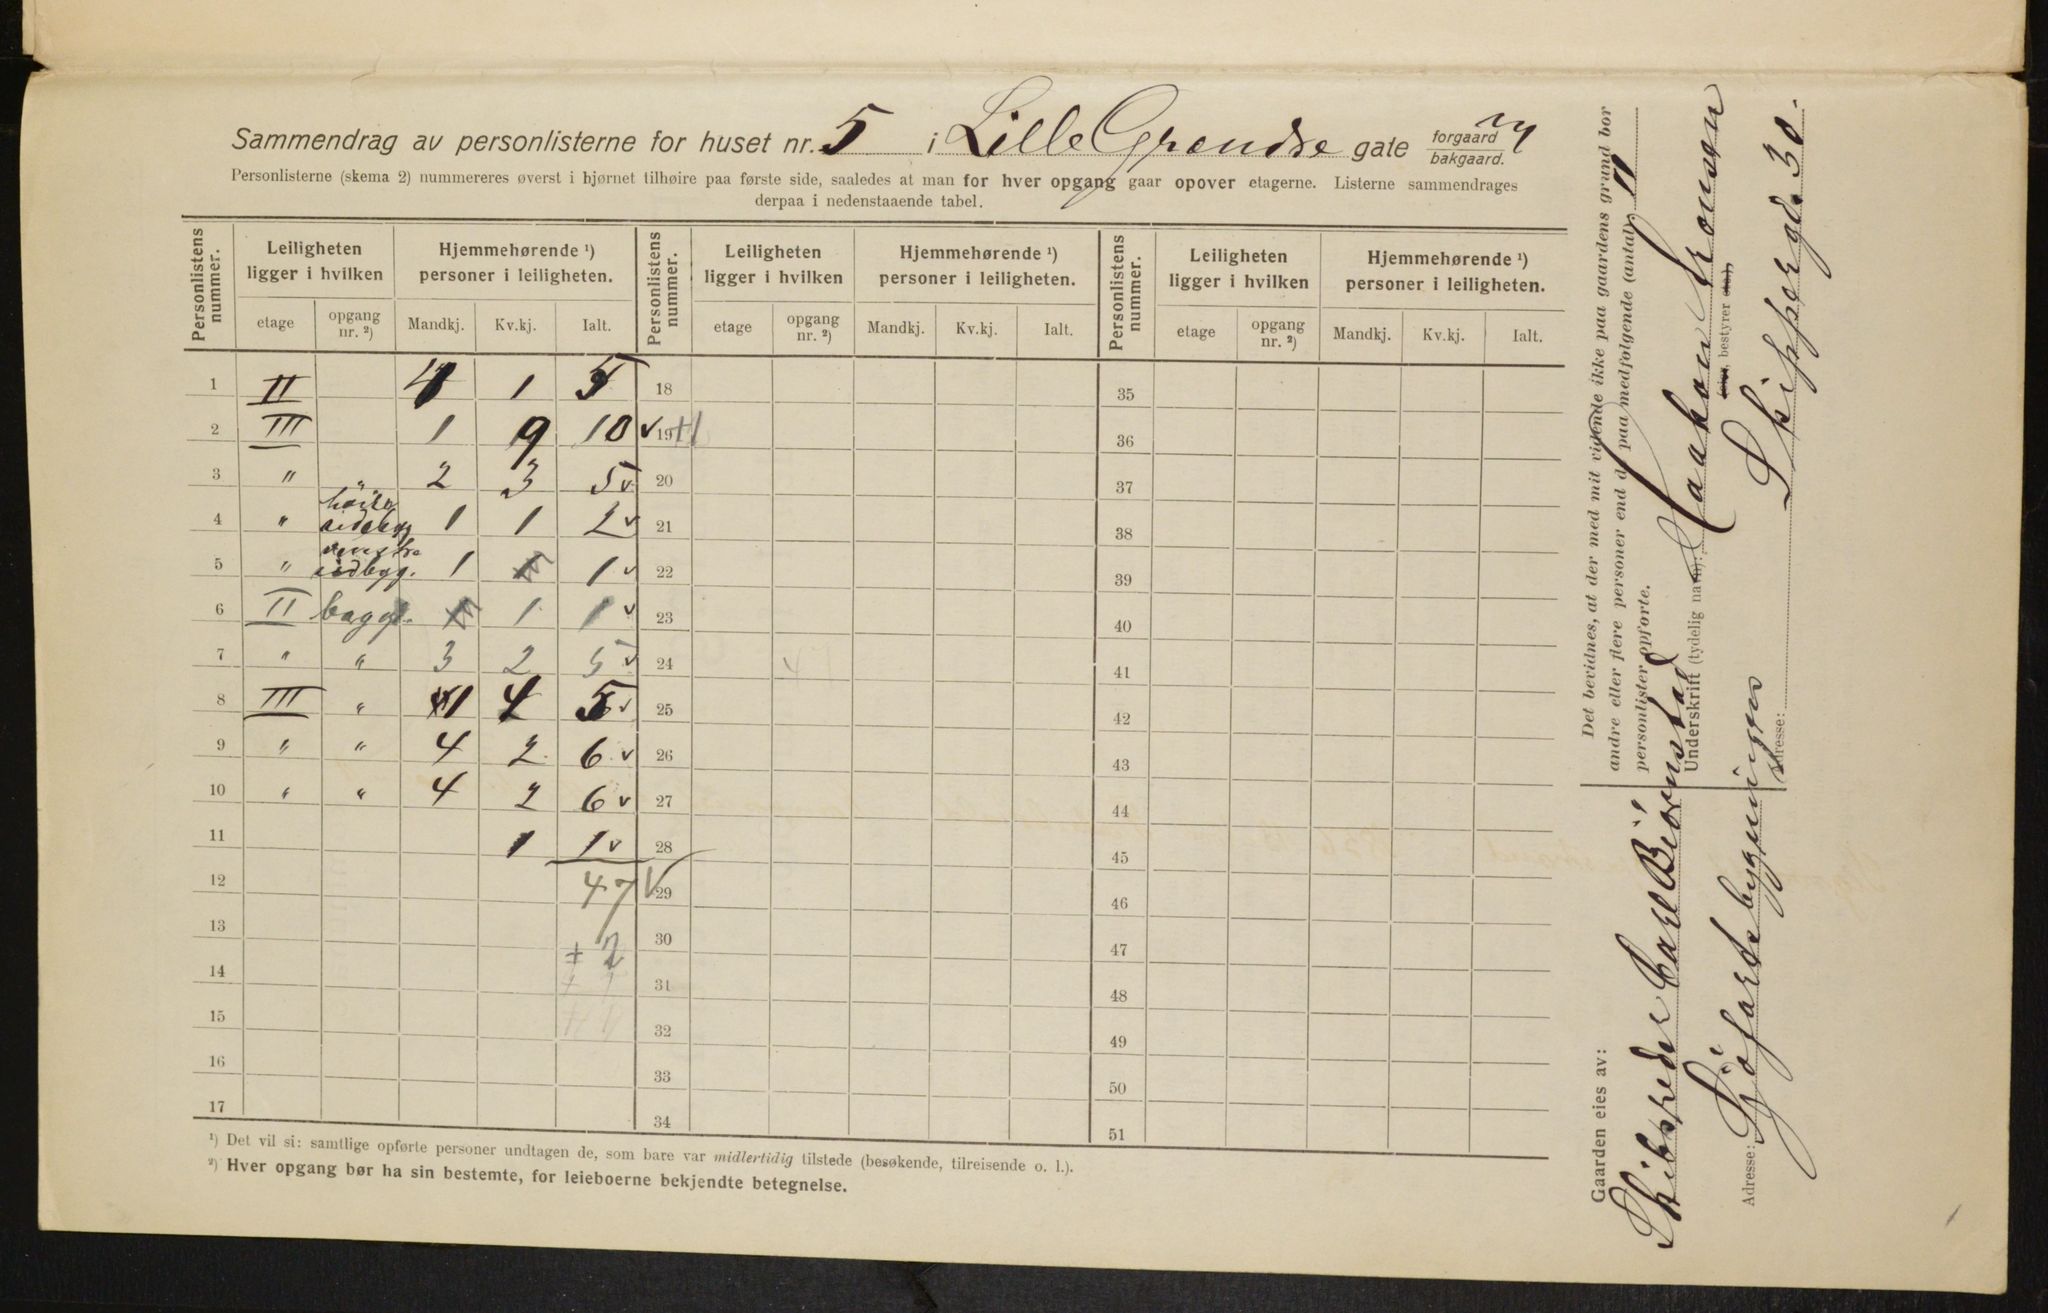 Sammendrag av personlisterne for huset nr. 5 i Lille Grændse gate forgaard bakgaard.
Personlisterne (skema 2) nummereres øverst i hjørnet tilhøire paa første side, saaledes at man for hver opgang gaar opover etagerne. Listerne sammendrages
derpaa i nedenstaaende tabel.
Personlistens nummer. Leiligheten ligger i hvilken Hjemmehørende ¹) personer i leiligheten. Personlistens nummer. Leiligheten ligger i hvilken Hjemmehørende ¹) personer i leiligheten. Personlistens nummer. Leiligheten ligger i hvilken Hjemmehørende ¹) personer i leiligheten.
etage opgang nr. ²) Mandkj. Kv.kj. Ialt. etage opgang nr. ²) Mandkj. Kv.kj. Ialt. etage opgang nr. ²) Mandkj. Kv.kj. Ialt.
1 II 4 1 5 18 35
2 III 1 9 10 v 19 +1 36
3 " 2 3 5 v 20 37
4 " høire sidebyg 1 1 2 v 21 38
5 " venstre sidbyg. 1 1 v 22 39
6 II baggb. 1 1 v 23 40
7 " " 3 2 5 v 24 41
8 III " 1 4 5 v 25 42
9 " " 4 2 6 v 26 43
10 " " 4 2 6 v 27 44
11 1 1 v 28 45
12 47 v 29 46
13 + 2 30 47
14 31 48
15 32 49
16 33 50
17 34 51
¹) Det vil si: samtlige opførte personer undtagen de, som bare var midlertidig tilstede (besøkende, tilreisende o. l.).
²) Hver opgang bør ha sin bestemte, for leieboerne bekjendte betegnelse.
Det bevidnes, at der med mit vidende ikke paa gaardens grund bor
andre eller flere personer end de paa medfølgende (antal) 11
personlister opførte.
Underskrift (tydelig navn): Haakon Aronsen
(eier, bestyrer etc.)
Adresse: Skippergd. 30.
Gaarden eies av:
Skibsreder Carl Bjørnstad
Adresse: Sjøfartsbygningen